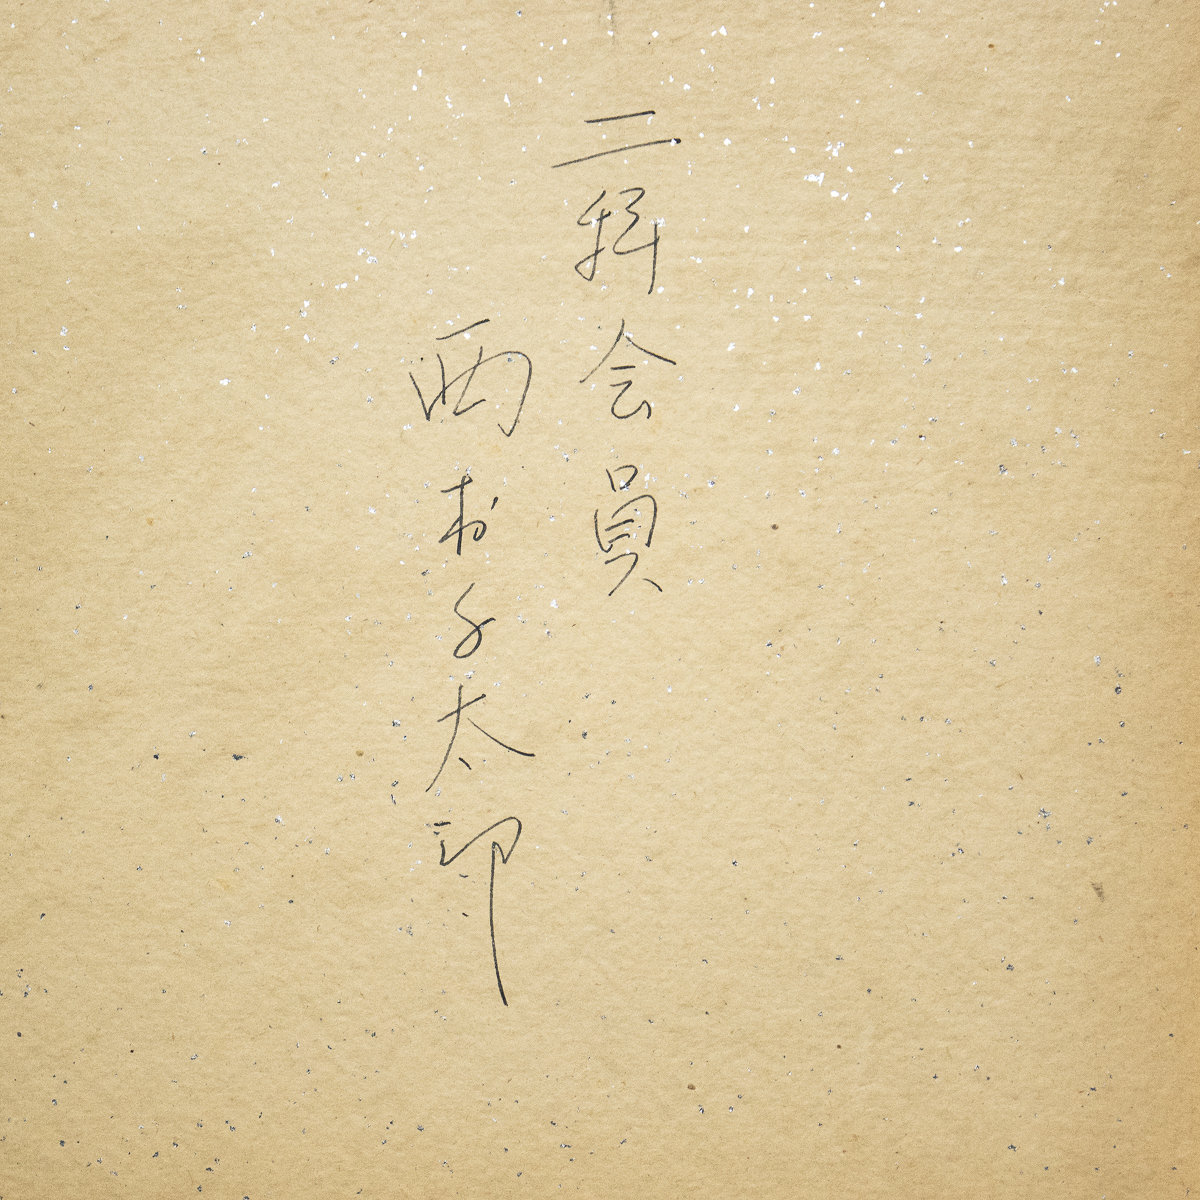 二科会員
西村千太郎